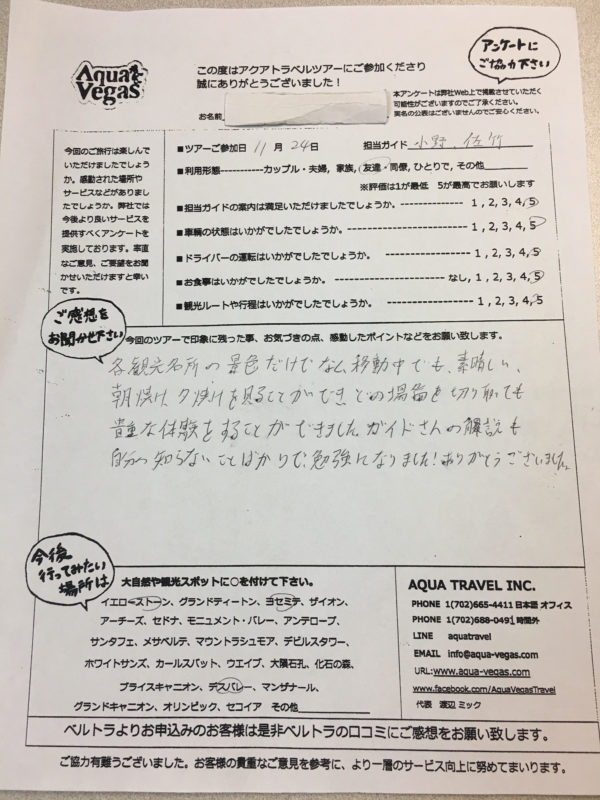 Aqua Vegas
この度はアクアトラベルツアーにご参加くださり
誠にありがとうございました！
アンケートに
ご協力下さい
本アンケートは弊社Web上で掲載させていただく
可能性がございますのでご了承ください。
実名の公表はございませんのでご安心ください。
お名前
今回のご旅行は楽しんで
いただけましたでしょう
か。感動された場所や
サービスなどがありまし
たでしょうか。弊社では
今後より良いサービスを
提供すべくアンケートを
実施しております。率直
なご意見、ご要望をお聞
かせいただけますと幸い
です。
■ツアーご参加日 11月 24日 担当ガイド 小野、佐竹
■利用形態------------カップル・夫婦, 家族, 友達・同僚, ひとりで, その他
※評価は1が最低 5が最高でお願いします
■担当ガイドの案内は満足いただけましたでしょうか。 --------------- 1 , 2, 3, 4, 5
■車輌の状態はいかがでしたでしょうか。 ------------------------- 1 , 2, 3, 4, 5
■ドライバーの運転はいかがでしたでしょうか。 -------------------- 1 , 2, 3, 4, 5
■お食事はいかがでしたでしょうか。 ------------------------- なし, 1 , 2, 3, 4, 5
■観光ルートや行程はいかがでしたでしょうか。 ------------------- 1 , 2, 3, 4, 5
ご感想を
お聞かせ下さい
今回のツアーで印象に残った事、お気づきの点、感動したポイントなどをお願い致します。
各観光名所の景色だけでなく、移動中でも、素晴しい、
朝焼け、夕焼けを見ることができ、どの場面を切り取っても
貴重な体験をすることができました。ガイドさんの解説も
自分の知らないことばかりで、勉強になりました！ありがとうございました。
今後
行ってみたい
場所は
大自然や観光スポットに○を付けて下さい。
イエローストーン、グランドティートン、ヨセミテ、ザイオン、
アーチーズ、セドナ、モニュメント・バレー、アンテロープ、
サンタフェ、メサベルテ、マウントラシュモア、デビルスタワー、
ホワイトサンズ、カールスバット、ウエイブ、大隕石孔、化石の森、
ブライスキャニオン、デスバレー、マンザナール、
グランドキャニオン、オリンピック、セコイア その他
AQUA TRAVEL INC.
PHONE 1(702)665-4411 日本語 オフィス
PHONE 1(702)688-0491 時間外
LINE aquatravel
EMAIL info@aqua-vegas.com
URL:www.aqua-vegas.com
www.facebook.com/AquaVegasTravel
代表 渡辺 ミック
ベルトラよりお申込みのお客様は是非ベルトラの口コミにご感想をお願い致します。
ご協力有難うございました。お客様の貴重なご意見を参考に、より一層のサービス向上に努めてまいります。